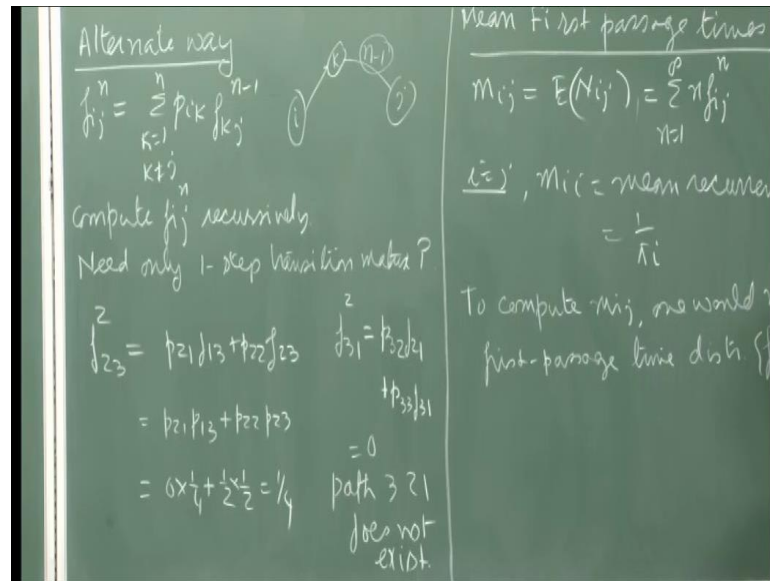 Alternate way
f_ij^n = Σ_{k=1, k≠j}^{n} p_ik f_kj^{n-1}
i k n-1 j
compute f_ij^n recursively.
Need only 1-step transition matrix P.
f_23^2 = p21 f13 + p22 f23
= p21 p13 + p22 p23
= 0×1/4 + 1/2×1/2 = 1/4
f_31^2 = p32 f21
+ p33 f31
= 0
path 3 21
does not
exist.
Mean First passage times
m_ij = E(N_ij) = Σ_{n=1}^{∞} n f_ij^n
i=j, m_ii = mean recurren
= 1/π_i
To compute m_ij, one would
first-passage time distn. {f